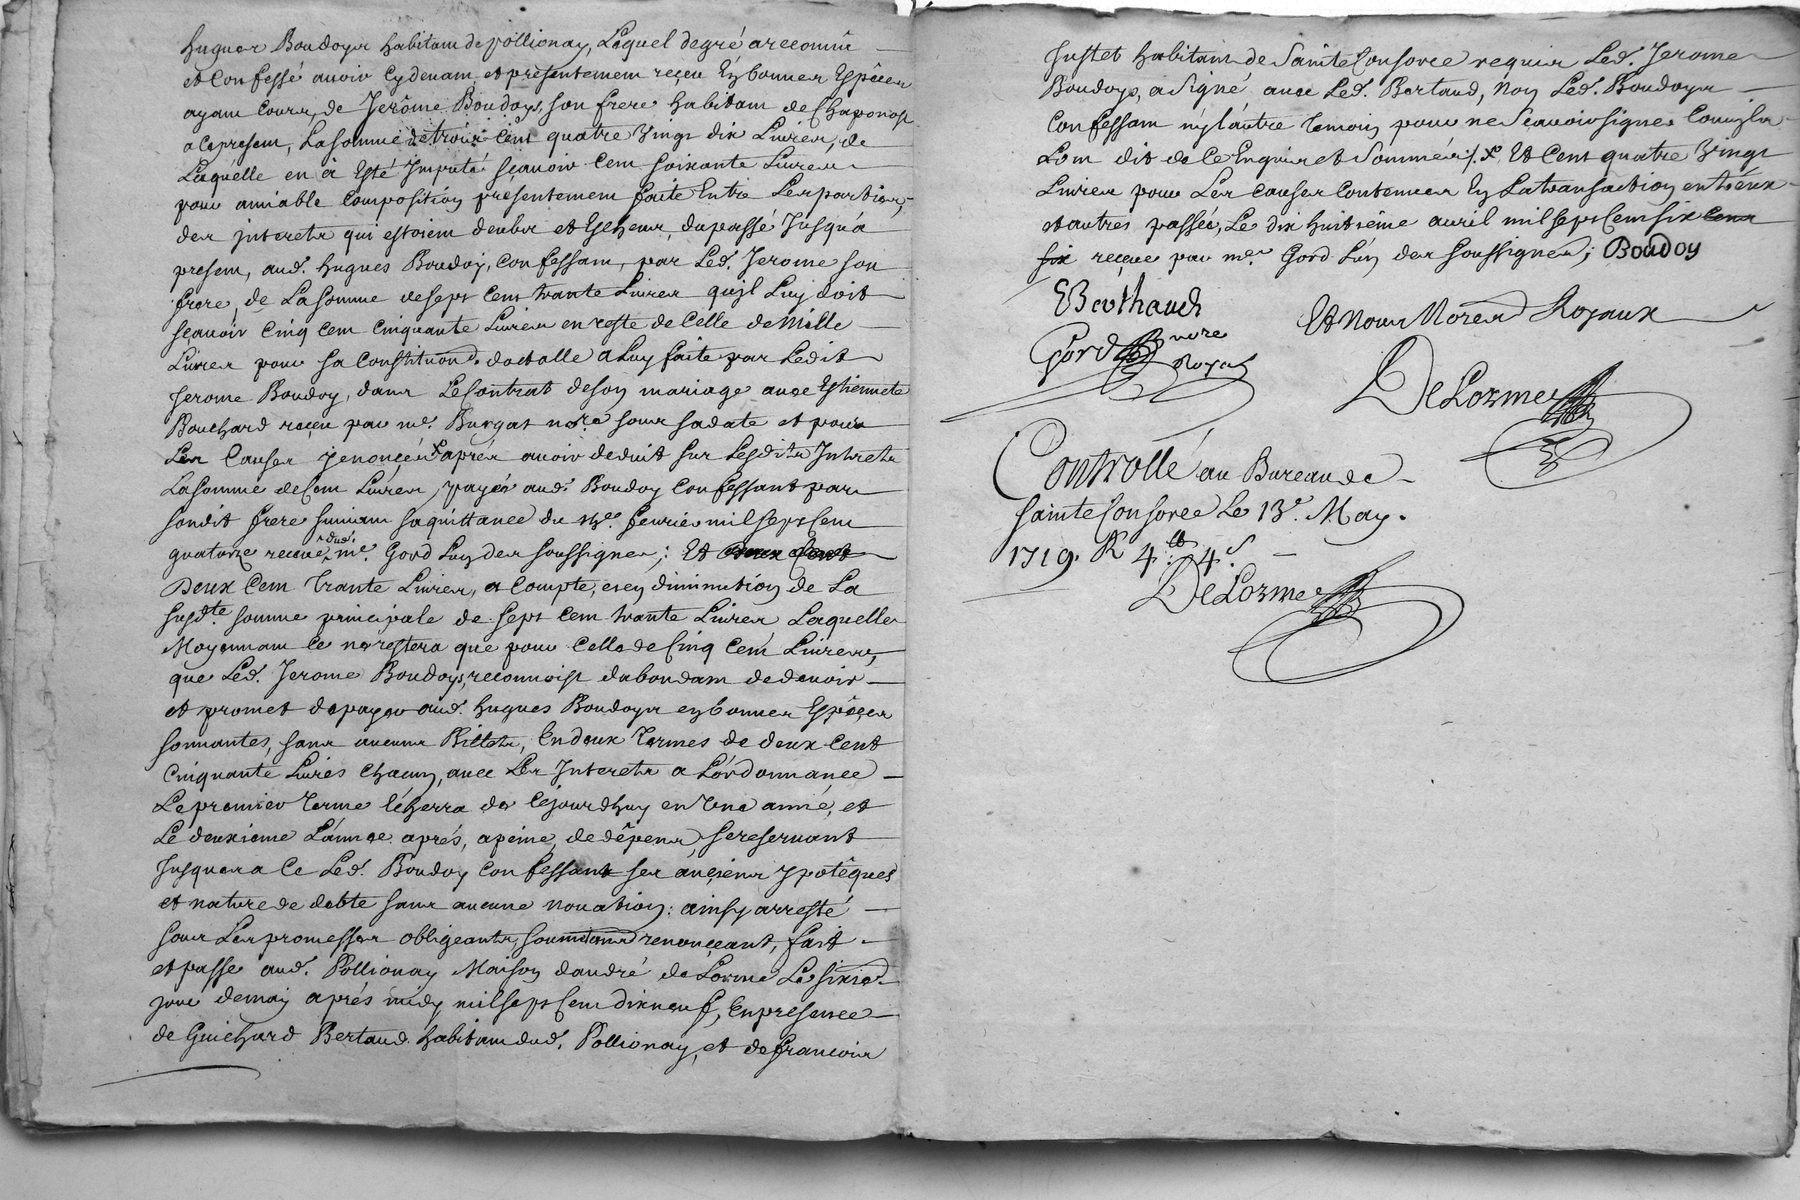 hugues Boudoys habitant de pollionay, Lequel de gré a reconnu
et Confessé avoir Cydevant et présentement reçeu En bonnes Espêces
ayant Cours, de Jerôme Boudoys, son frere habitant de Chaponost
a Ce present, La somme de trois Cent quatre vingt dix Livres, de
Laquélle en à Esté Imputé sçavoir Cent soixante Livres
pour amiable Composition presentement faite Entre Les parties,
des jnterets qui estoient deubs et Escheus, du passé Jusqu'à
present, aud. hugues Boudoy, Confessant, par Led. Jerome son
frere, de La somme de sept Cent trante Livres qu'il Luy doit
sçavoir Cinq Cent Cinquante Livres en reste de Celle de Mille
Livres pour sa Constitution dottalle a Luy faite par Ledit
Jerome Boudoy, dans Le Contrat de son mariage avec Estiennete
Bouchard reçeu par me. Burgat nore sous sa date et pour
Les Causes y enoncées aprés avoir deduit sur Lesdits Interets
La somme de Cent Livres, payés aud. Boudoy Confessant par
sondit frere suivant sa quittance du fevrier mil sept Cent
quatorze receue dud. me. Gord L'un des soussignes; Et deux Cent
Deux Cent Trante Livres, a Compte, et en diminution de La
susdte. somme principale de sept Cent trante Livres Laquelle
Moyennant Ce ne réstera que pour Celle de Cinq Cent Livres,
que Led. Jerome Boudoys, reconnoist d'abondant de devoir
et promet de payer aud. hugues Boudoys en bonnes Espêces
sonnantes, sans aucuns Billets, En deux Termes de deux Cent
Cinquante Livres Chacun, avec Les Interets a L'ordonnance
Le premier Terme écherra de Cejourdhuy en Une année, et
Le deuxieme L'année aprés, a peine, de dêpens, se reservant
Jusques a Ce Led. Boudoy Confessant ses anciens ypotêques
et nature de debte sans aucune novation: ainsy arresté
sous Les promesses obligeants, soumettant renonçeant, fait
et passé aud. Pollionay Maison d'andré de Lorme Le sixie.
jour de may aprés midy mil sept Cent dix neuf, En presence
de Guichard Bertaud habitant dud. Pollionay, et de francois
Justet habitant de Sainte Consorce requis Led. Jerome
Boudoys, a Signé avec Led. Bertaud, Non Led. Boudoys
Confessant ny l'autre temoin pour ne Sçavoir signer Comme Ils
L'ont dit de Ce Enquis et Sommés /. x Et Cent quatre vingt
Livres pour Les Causes Contenues En La transaction entr'eux
et autres passée, Le dix huitième avril mil sept Cent six Cent
six reçeue par me Gord L'un des soussignes; Boudoy
EBerthaud
Et Nous Nores Royaux
Gord nore
Royal
DeLorme
Controllé au Bureau de
Sainte Consorce Le 13e. May.
1719. R 4lt: 4s.
DeLorme